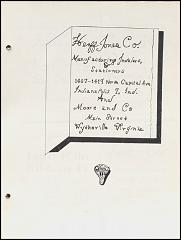 Herff Jones Co.
Manufacturing Jewelers,
Stationers
1407-1419 North Capital Ave.
Indianapolis 7, Ind.
And
Moore and Co
Main Street
Wytheville Virginia